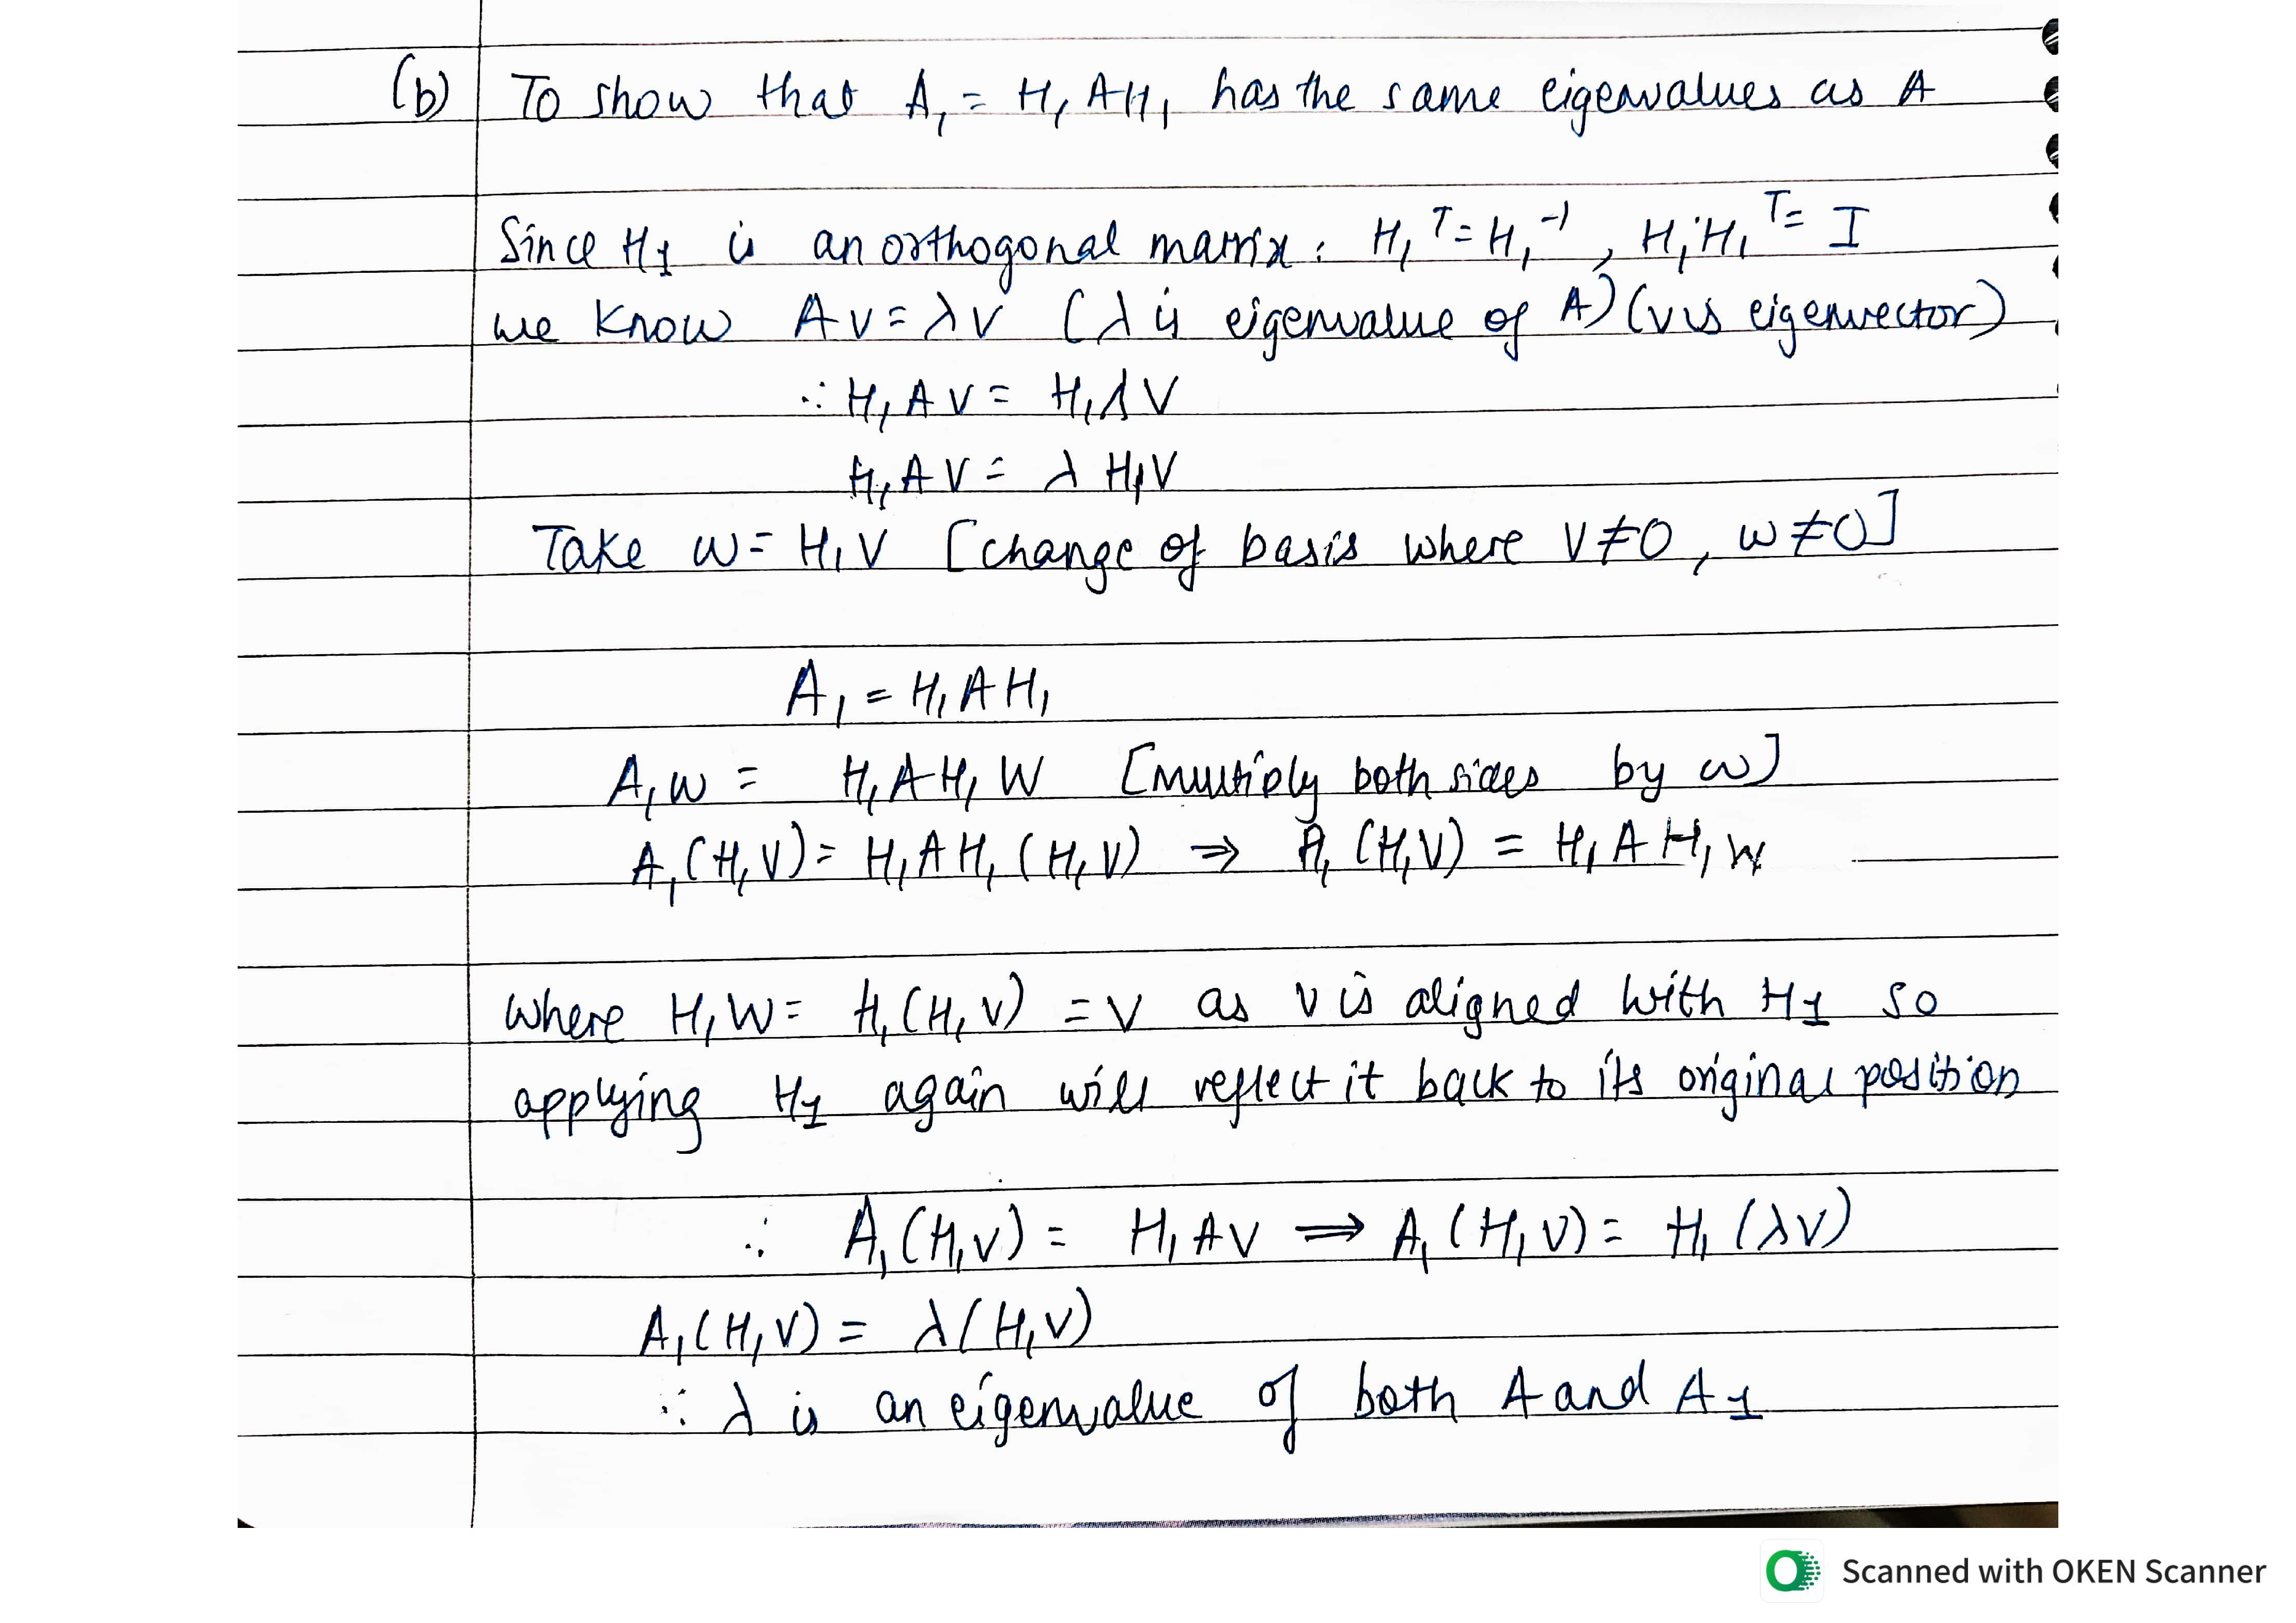 (b) To show that A₁ = H₁AH₁ has the same eigenvalues as A
Since H1 is an orthogonal matrix : H₁ᵀ = H₁⁻¹ , H₁·H₁ᵀ = I
we know Av = λv (λ is eigenvalue of A) (v is eigenvector)
∴ H₁AV = H₁λV
H₁AV = λ H₁V
Take w = H₁V [change of basis where V≠0, w≠0]
A₁ = H₁AH₁
A₁w = H₁AH₁W [multiply both sides by w]
A₁(H₁V) = H₁AH₁(H₁V) ⇒ A₁(H₁V) = H₁AH₁W
where H₁W = H₁(H₁V) = V as v is aligned with H1 so
applying H1 again will reflect it back to its original position
∴ A₁(H₁V) = H₁AV ⇒ A₁(H₁V) = H₁(λV)
A₁(H₁V) = λ(H₁V)
∴ λ is an eigenvalue of both A and A1
Scanned with OKEN Scanner